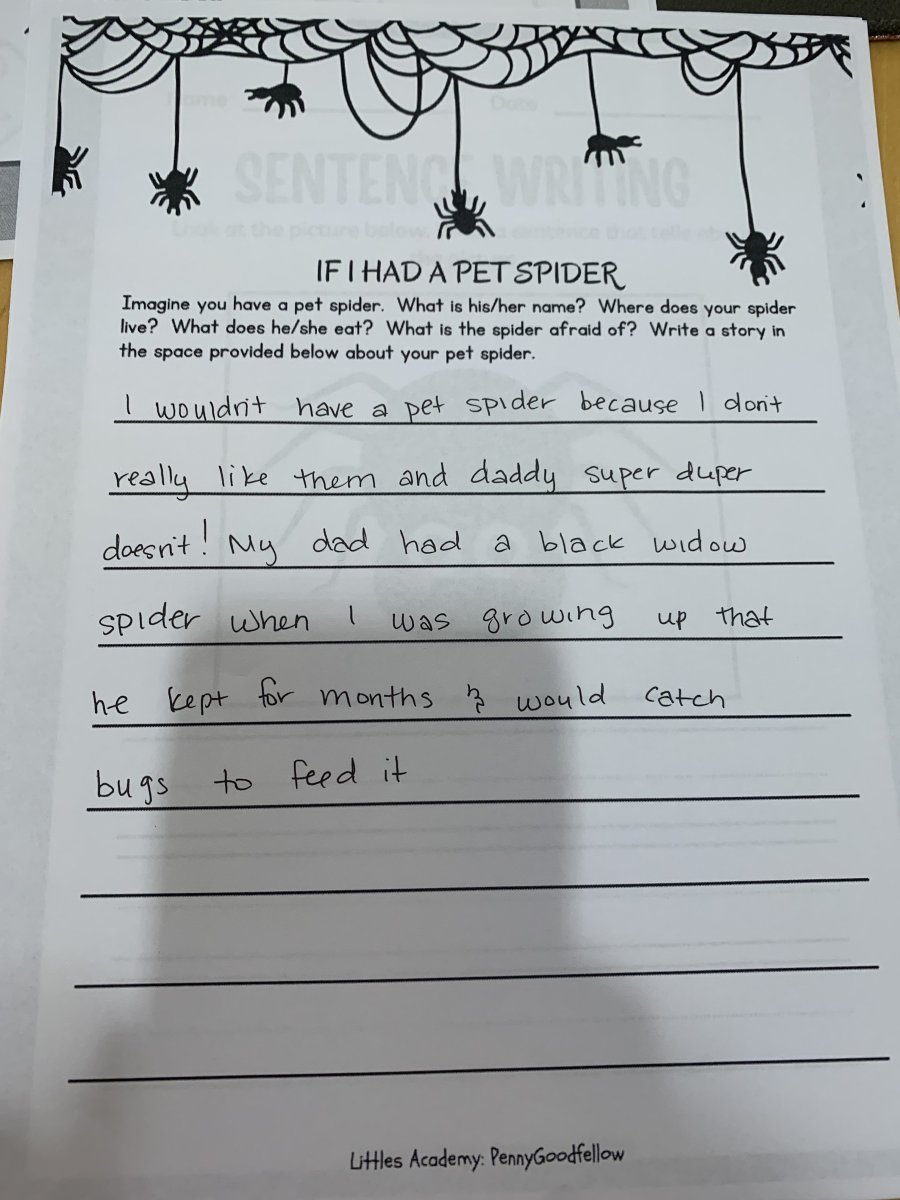 Name Date
SENTENCE WRITING
IF I HAD A PET SPIDER
Imagine you have a pet spider. What is his/her name? Where does your spider
live? What does he/she eat? What is the spider afraid of? Write a story in
the space provided below about your pet spider.
I wouldn't have a pet spider because I don't
really like them and daddy super duper
doesn't! My dad had a black widow
spider when I was growing up that
he kept for months & would catch
bugs to feed it
Littles Academy: PennyGoodfellow